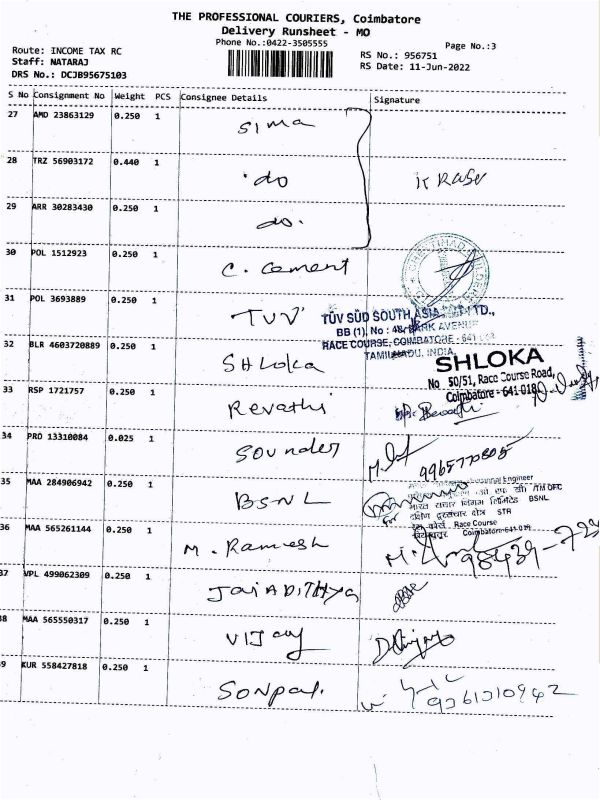 THE PROFESSIONAL COURIERS, Coimbatore
Delivery Runsheet - MO
Phone No.:0422-3505555
Page No.:3
Route: INCOME TAX RC
Staff: NATARAJ
DRS No.: DCJB95675103
RS No.: 956751
RS Date: 11-Jun-2022
S No Consignment No Weight PCS Consignee Details Signature
27 AMD 23863129 0.250 1 Sima
28 TRZ 56903172 0.440 1 do
29 ARR 30283430 0.250 1 do.
30 POL 1512923 0.250 1 C. Cement
31 POL 3693889 0.250 1 TUV
TÜV SÜD SOUTH ASIA PVT LTD.,
BB (1), No : 48, PARK AVENUE
RACE COURSE, COIMBATORE - 641 018
TAMILNADU, INDIA.
32 BLR 4603720889 0.250 1 SHLoka
SHLOKA
No 50/51, Race Course Road,
Coimbatore - 641 018
33 RSP 1721757 0.250 1 Revathi
34 PRO 13310084 0.025 1 Sounder
35 MAA 284906942 0.250 1 BSNL
Engineer
BSNL
STR
Race Course
Coimbatore-641 018
36 MAA 565261144 0.250 1 M. Ramesh
37 VPL 499062309 0.250 1 JaiADITHya
38 MAA 565550317 0.250 1 VIJay
39 KUR 558427818 0.250 1 Sonpal.
9361310942